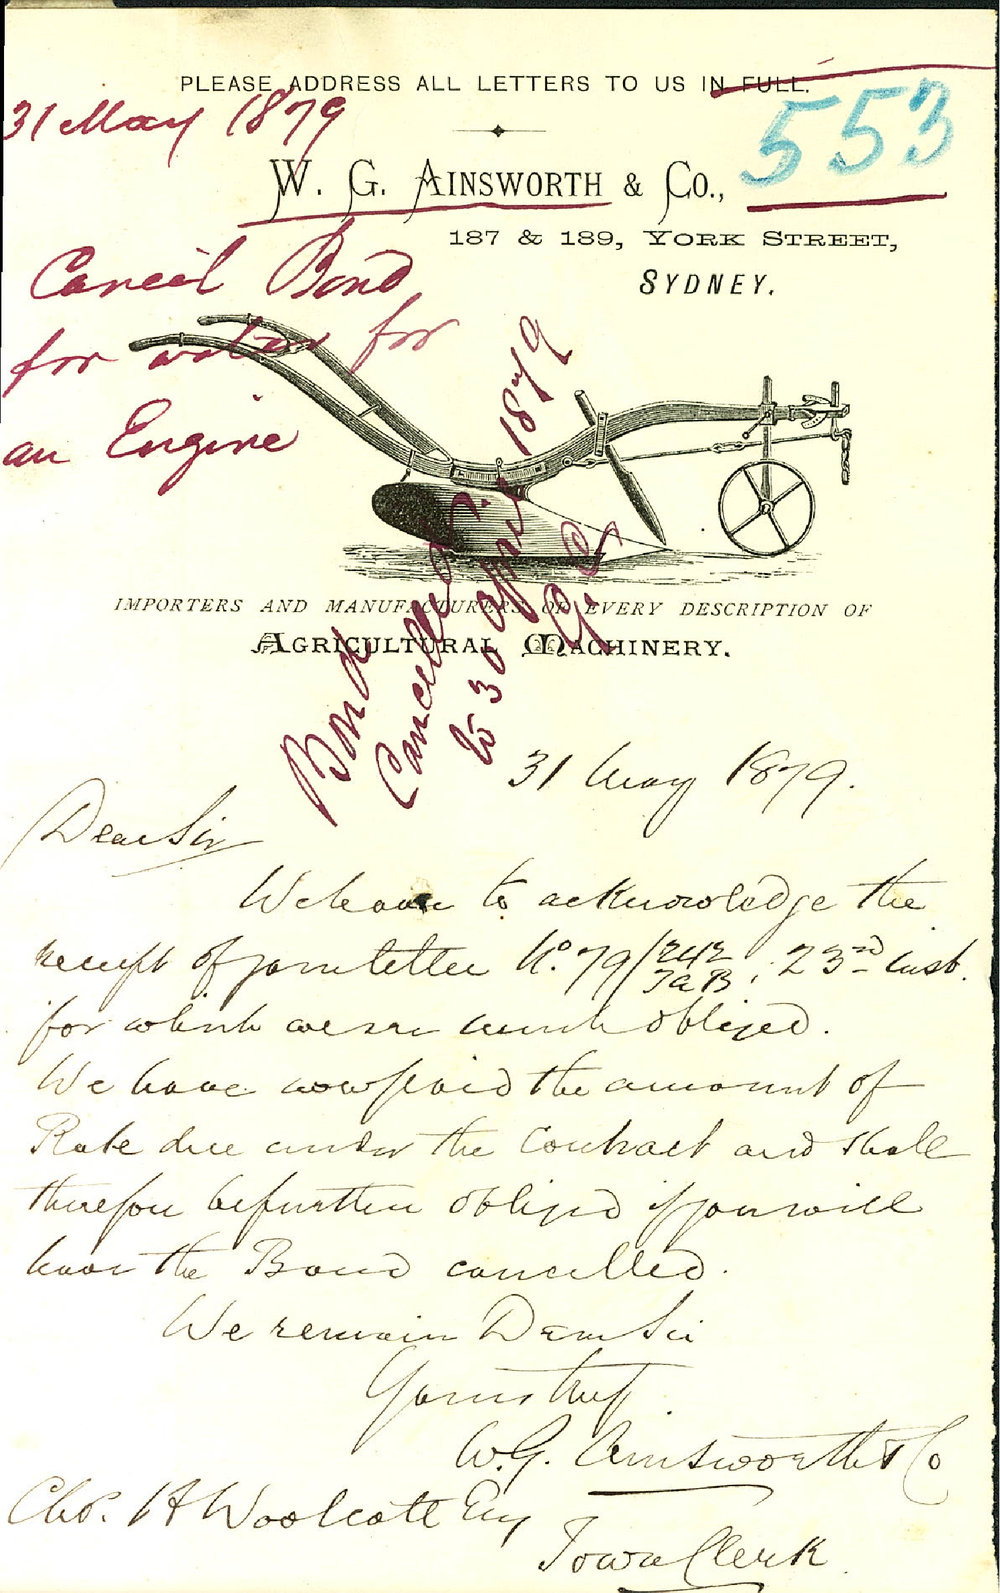 PLEASE ADDRESS ALL LETTERS TO US IN FULL.
31 May 1879
553
W. G. AINSWORTH & Co.,
187 & 189, YORK STREET,
SYDNEY.
Cancel Bond
for water for
an Engine
IMPORTERS AND MANUFACTURERS OF EVERY DESCRIPTION OF
AGRICULTURAL MACHINERY.
Bond
Cancelled
to 30 April 1879
31 May 1879.
Dear Sir
We have to acknowledge the
receipt of your letter No. 79/242 23rd inst.
for which we are much obliged.
We have now paid the amount of
Rate due under the Contract and shall
therefore be further obliged if you will
have the Bond cancelled.
We remain Dear Sir
Yours truly
W.G. Ainsworth & Co
Chs. H Woolcott Esq
Town Clerk